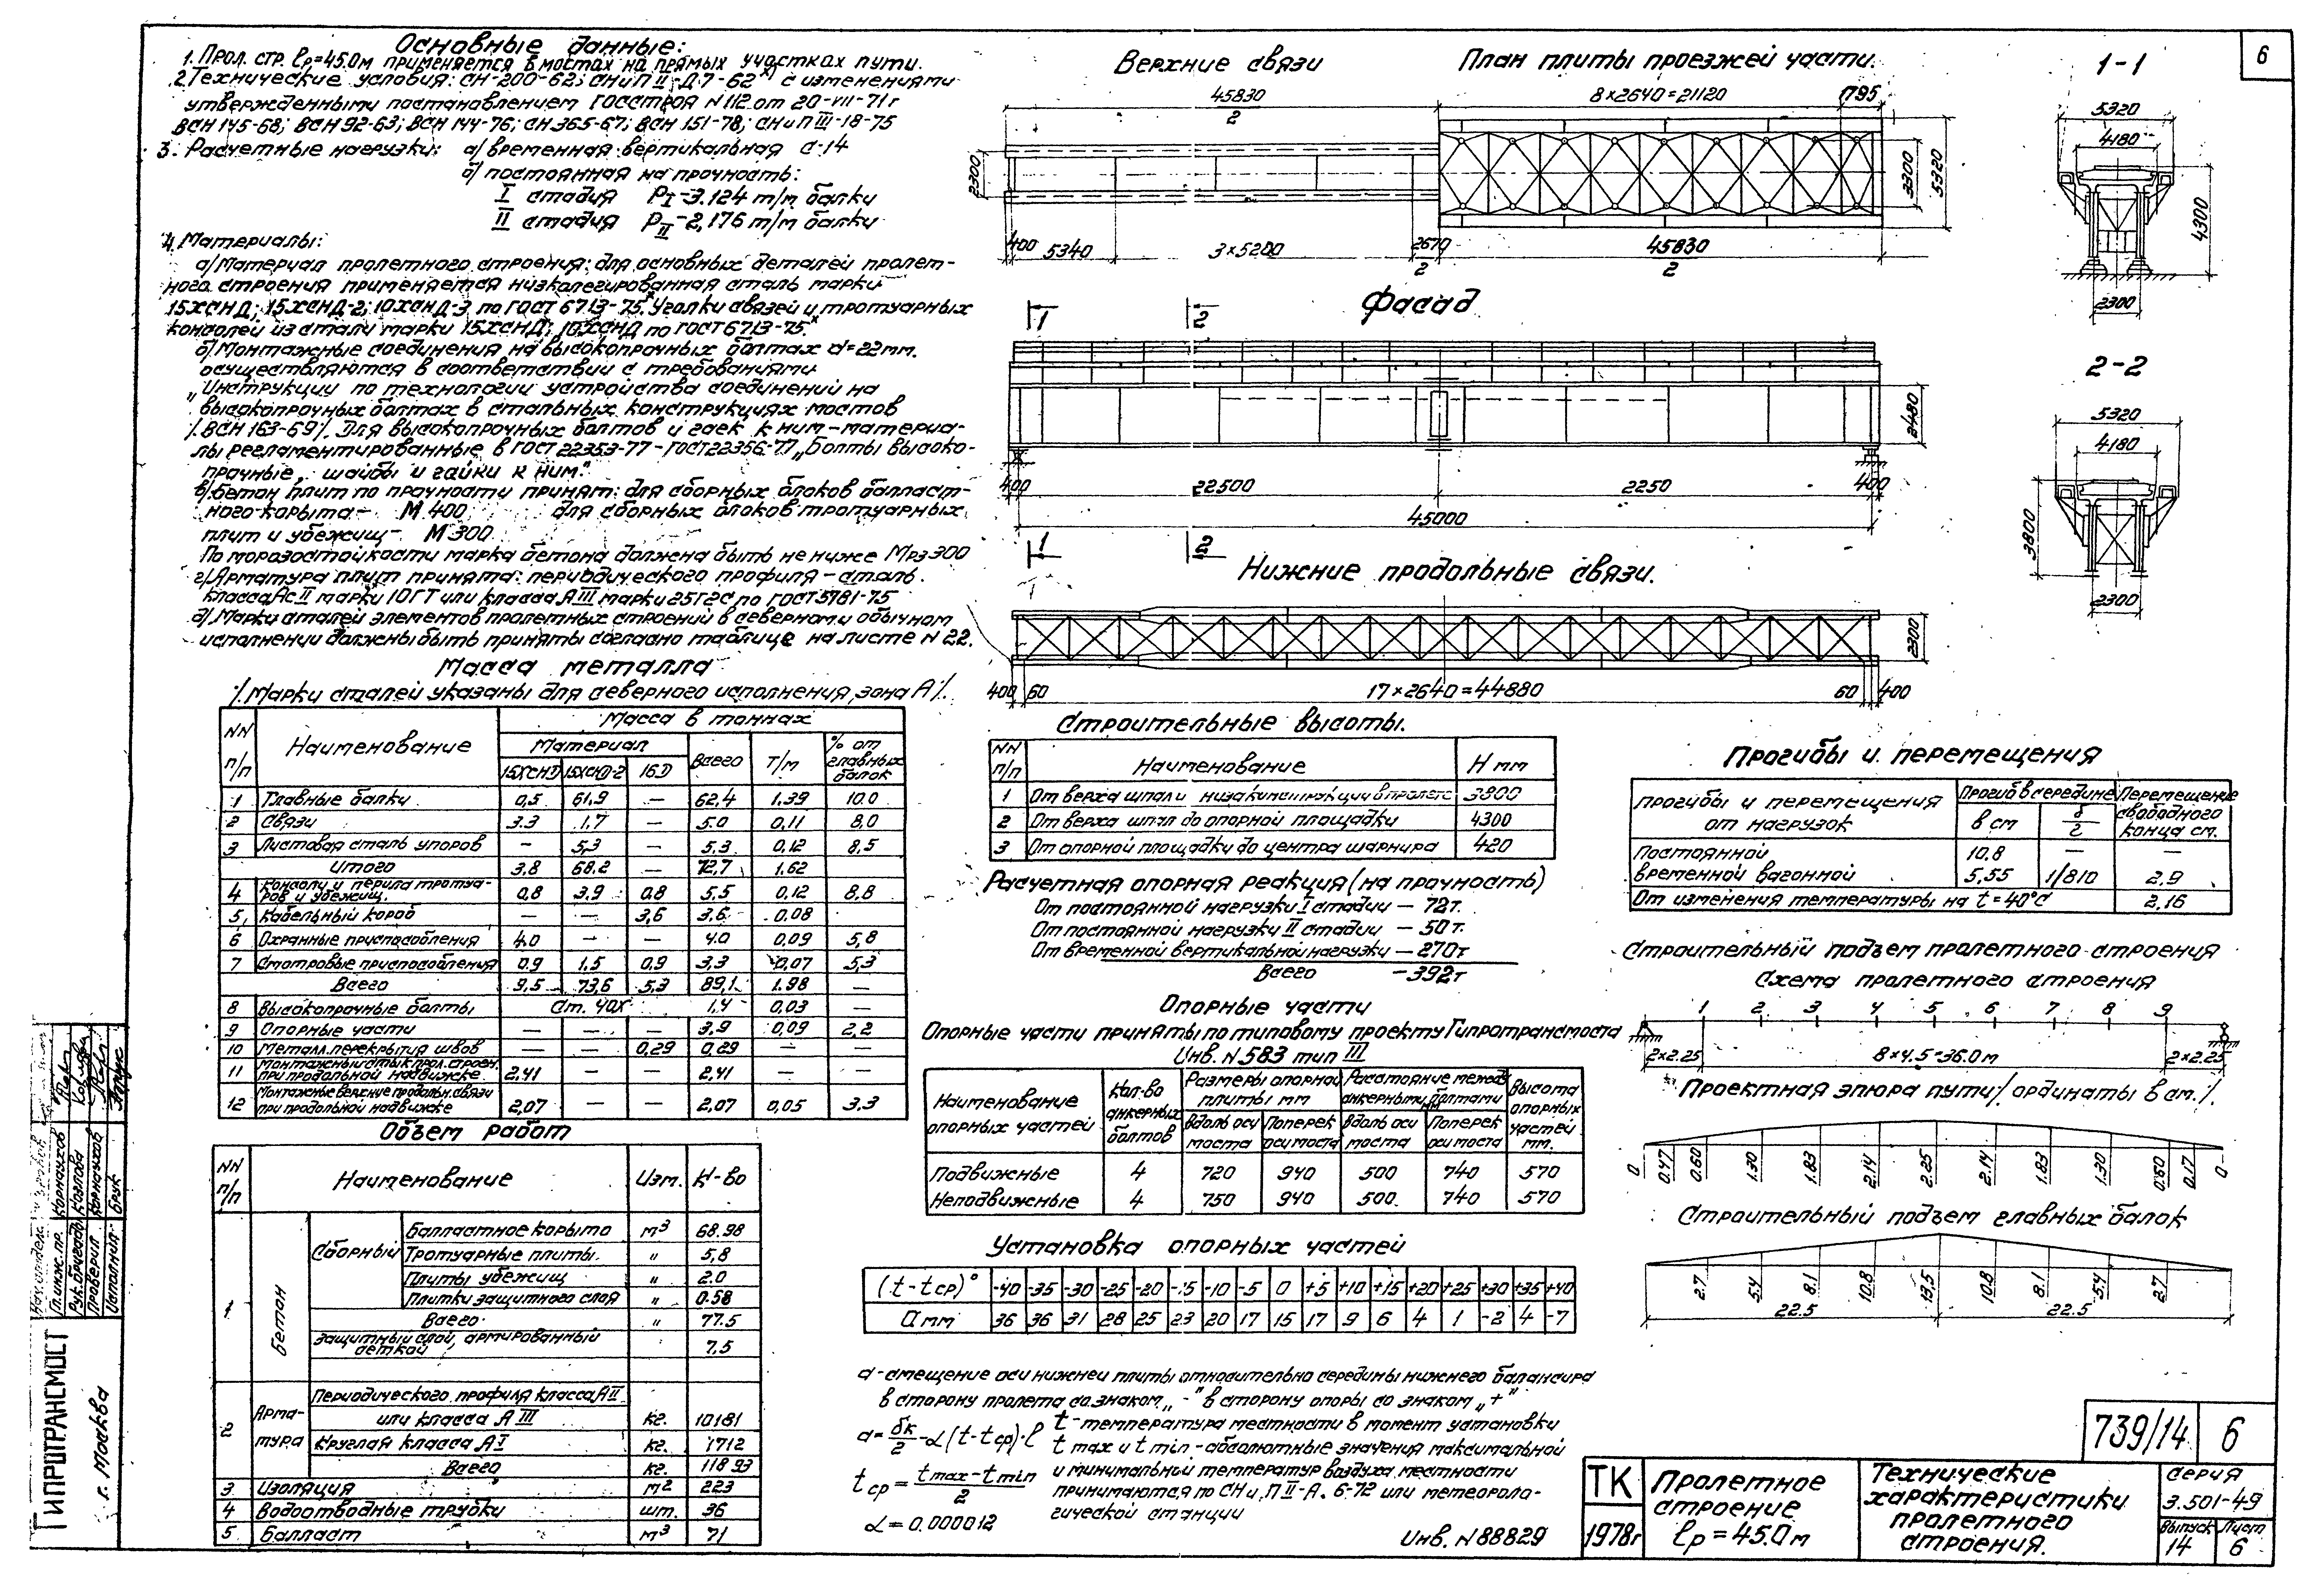 6
Основные данные:
1. Прол. стр. lр=45.0м применяется в мостах на прямых участках пути.
2. Технические условия: СН-200-62; СНиП II-Д.7-62ˣ⁾ с изменениями
утвержденными постановлением Госстроя N112 от 20-VII-71г
ВСН 145-68; ВСН 92-63; ВСН 144-76; СН 365-67; ВСН 151-78; СНиП III-18-75
3. Расчетные нагрузки: а/ временная вертикальная С-14
б/ постоянная на прочность:
I стадия PI-3.124 т/м балки
II стадия PII-2,176 т/м балки
4. Материалы:
а/ Материал пролетного строения: для основных деталей пролет-
ного строения применяется низколегированная сталь марки
15ХСНД; 15ХСНД-2; 10ХСНД-3 по ГОСТ 6713-75ˣ Уголки связей и тротуарных
консолей из стали марки 15ХСНД; 10ХСНД по ГОСТ 6713-75ˣ
б/ Монтажные соединения на высокопрочных болтах d=22мм.
осуществляются в соответствии с требованиями
„Инструкции по технологии устройства соединений на
высокопрочных болтах в стальных конструкциях мостов
/.ВСН 163-69/. Для высокопрочных болтов и гаек к ним-материа-
лы регламентированные в ГОСТ 22353-77-ГОСТ 22356-77 „Болты высоко-
прочные, шайбы и гайки к ним."
в/ Бетон плит по прочности принят: для сборных блоков балласт-
ного корыта- М 400 для сборных блоков тротуарных
плит и убежищ- М 300
По морозостойкости марка бетона должна быть не ниже Мрз 300
г/ Арматура плит принята: периодического профиля-сталь
класса АсII марки 10ГТ или класса АIII марки 25Г2С по ГОСТ 5781-75
д/ Марки сталей элементов пролетных строений в северном и обычном
исполнении должны быть приняты согласно таблице на листе N 22.
Масса металла
/.Марки сталей указаны для северного исполнения, зона А/.
NN п/п Наименование Масса в тоннах
Материал Всего Т/м % от главных балок
15ХСНД 15ХСНД-2 16Д
1 Главные балки 0,5 61,9 — 62,4 1,39 10.0
2 Связи 3.3 1.7 — 5.0 0,11 8,0
3 Листовая сталь упоров — 5,3 — 5,3 0,12 8,5
Итого 3,8 68.2 — 72,7 1.62
4 Консоли и перила тротуа-
ров и убежищ. 0.8 3.9 0.8 5.5 0.12 8,8
5 Кабельный короб — — 3,6 3,6 0.08
6 Охранные приспособления 4.0 — — 4.0 0,09 5,8
7 Смотровые приспособления 0.9 1.5 0.9 3,3 0,07 5,3
Всего 9,5 73,6 5,3 89,1 1.98 —
8 Высокопрочные болты Ст. 40Х 1.4 0,03 —
9 Опорные части — — — 3.9 0,09 2,2
10 Металл. перекрытия швов — — 0,29 0,29 — —
11 Монтажный стык прол. строен.
при продольной надвижке. 2,41 — — 2,41 — —
12 Монтажные верхние продольн. связи
при продольной надвижке 2,07 — — 2,07 0,05 3.3
Объем работ
NN п/п Наименование Изм. К-во
1 Бетон Сборный Балластное корыто м³ 68.98
Тротуарные плиты. „ 5,8
Плиты убежищ „ 2.0
Плитки защитного слоя „ 0.58
Всего „ 77.5
Защитный слой, армированный
сеткой 7,5
2 Арма-
тура Периодического профиля класса АII
или класса А III кг. 10181
Круглая класса АI кг. 1712
Всего кг. 11893
3 Изоляция м² 223
4 Водоотводные трубки шт. 36
5 Балласт м³ 71
Верхние связи
План плиты проезжей части.
45830
2
8×2640=21120
795
2300
3300
5320
400 5340 3×5200
2670
2
45830
2
1-1
5320
4180
4300
2300
Фасад
1 2
2480
400 22500 2250 400
45000
1 2
2-2
5320
4180
3800
2300
Нижние продольные связи.
2300
400 60 17×2640=44880 60 400
Строительные высоты.
NN п/п Наименование H мм
1 От верха шпал и низа конструкции в пролете 3800
2 От верха шпал до опорной площадки 4300
3 От опорной площадки до центра шарнира 420
Расчетная опорная реакция (на прочность)
От постоянной нагрузки I стадии — 72т.
От постоянной нагрузки II стадии — 50т.
От временной вертикальной нагрузки — 270т
Всего -392т
Опорные части
Опорные части приняты по типовому проекту Гипротрансмоста
Инв. N 583 тип III
Наименование опорных частей Кол-во анкерных болтов Размеры опорной плиты мм Расстояние между анкерными болтами мм Высота опорных частей мм.
Вдоль оси моста Поперек оси моста Вдоль оси моста Поперек оси моста
Подвижные 4 720 940 500 740 570
Неподвижные 4 750 940 500. 740 570
Установка опорных частей
(t-tср)° -40 -35 -30 -25 -20 -15 -10 -5 0 +5 +10 +15 +20 +25 +30 +35 +40
а мм 36 36 31 28 25 23 20 17 15 17 9 6 4 1 -2 4 -7
а-смещение оси нижней плиты относительно середины нижнего балансира
в сторону пролета со знаком „-" в сторону опоры со знаком „+"
a=δк/2-α(t-tср)·l
t-температура местности в момент установки
t max и t min-абсолютные значения максимальной
tср = tmax-tmin/2
и минимальной температур воздуха местности
принимаются по СНиП II-А.6-72 или метеороло-
α=0.000012
гической станции
Инв. N 88829
Прогибы и перемещения
Прогибы и перемещения от нагрузок Прогиб в середине Перемещение свободного конца см.
в см δ/2
Постоянной 10.8 — —
Временной вагонной 5,55 1/810 2,9
От изменения температуры на t=40°С 2,16
Строительный подъем пролетного строения
Схема пролетного строения
1 2 3 4 5 6 7 8 9
2×2.25 8×4.5=36.0м 2×2.25
Проектная эпюра пути /ординаты в см./.
0 0.47 0.60 1.30 1.83 2.14 2.25 2.14 1.83 1.30 0.60 0.17 0
Строительный подъем главных балок
2.7 5.4 8.1 10.8 13.5 10.8 8.1 5.4 2.7
22.5 22.5
739/14 6
ТК
1978г
Пролетное
строение
lр=45.0м
Технические
характеристики
пролетного
строения.
Серия
3.501-49
Выпуск
14
Лист
6
Гл. инж. пр. Корнаухов
Рук. бригады Козлова
Проверил Корнаухов
Исполнил Брук
ГИПРОТРАНСМОСТ
г. Москва